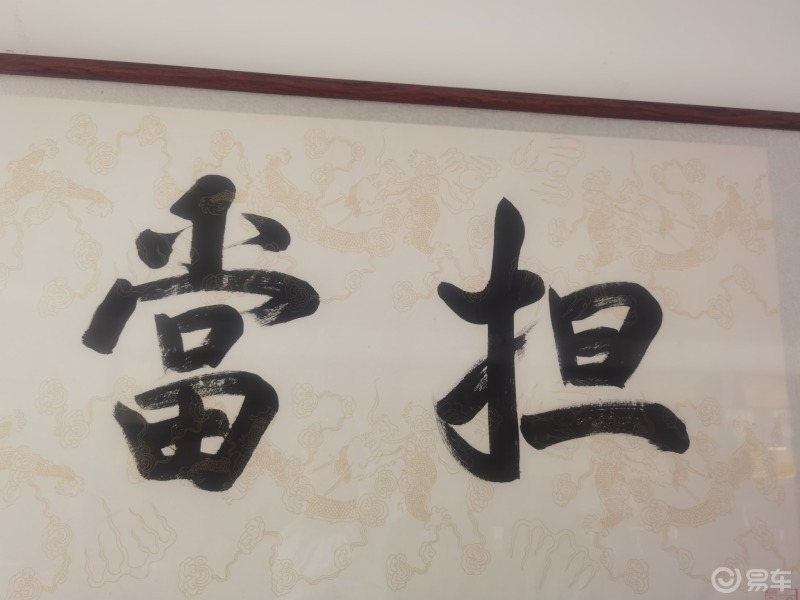 担當
易车